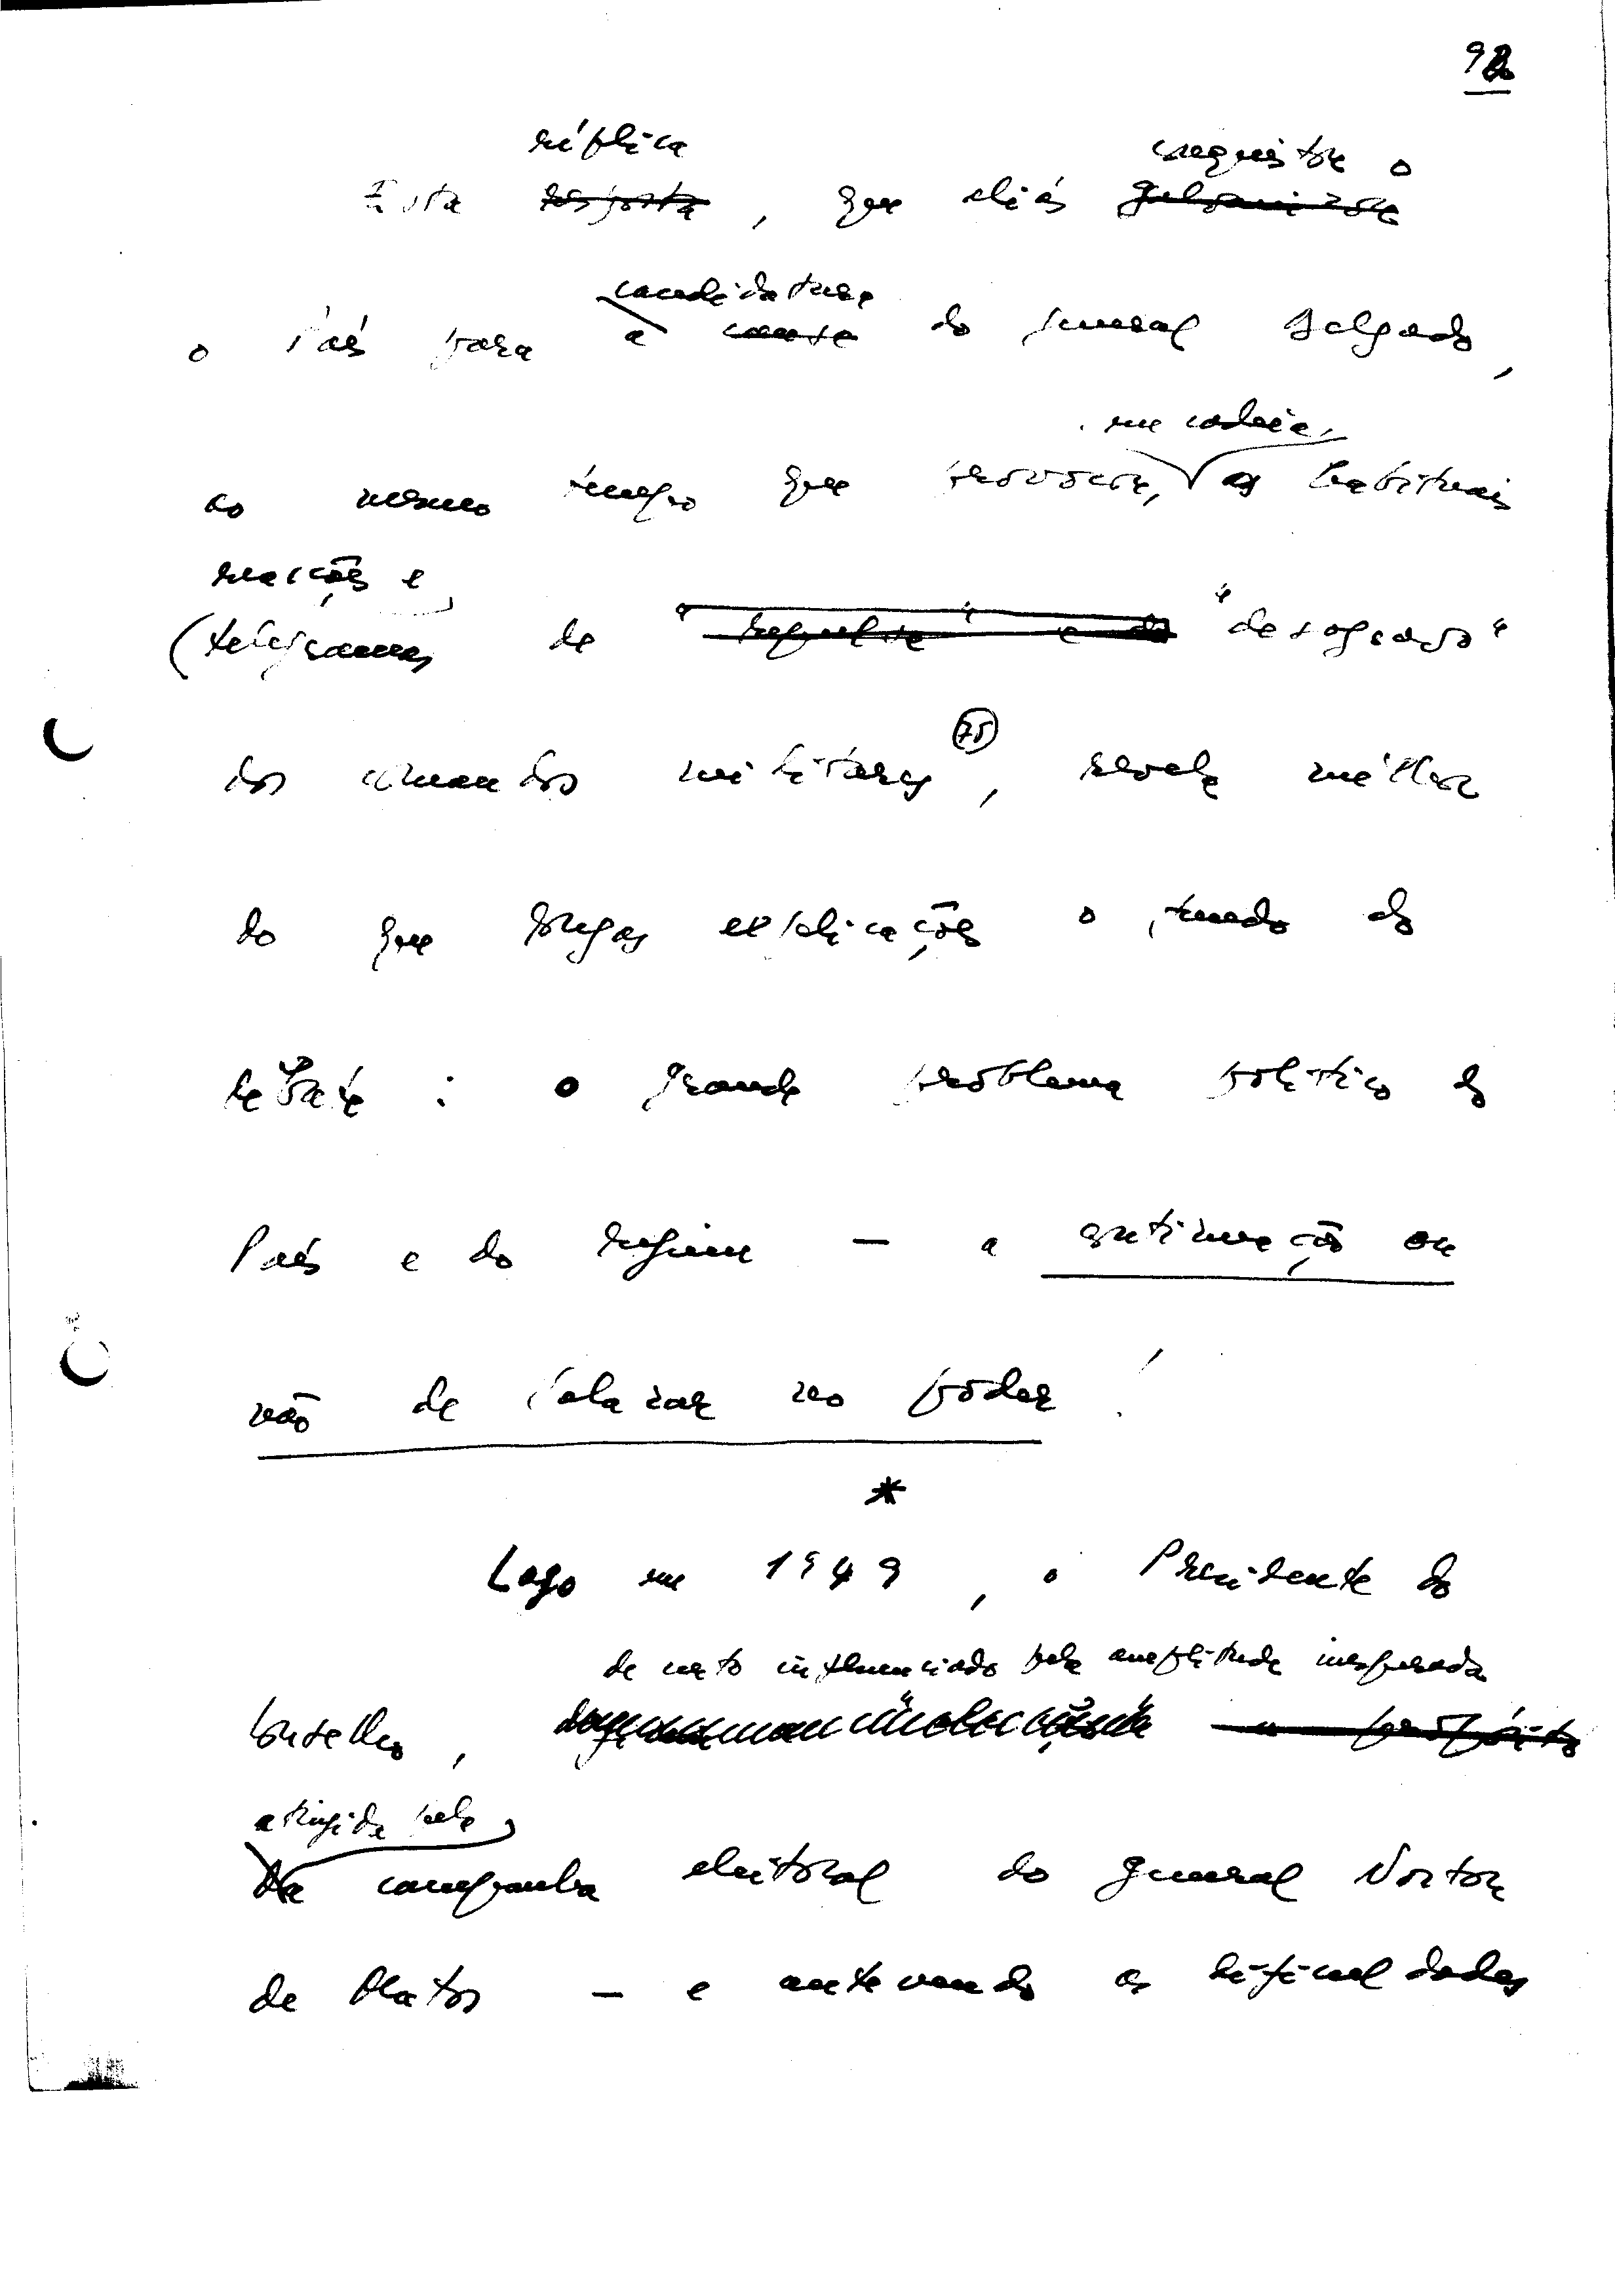 92
réplica conquista o
Esta resposta, que aliás galvaniza
candidatura
o País para a causa do general Delgado,
em cadeia,
ao mesmo tempo que provoca, as habituais
reacções e
(telegramas de "repulsa" e de "desagravo"
dos comandos militares (75), revela melhor
do que longas explicações o fundo do
debate: o grande problema político do
País e do regime — a continuação ou
não de Salazar no poder!
*
Logo em 1949, o Presidente do
de certo influenciado pela amplitude inesperada
Conselho, a propósito
atingida pela
da campanha eleitoral do general Norton
de Matos — e antevendo as dificuldades